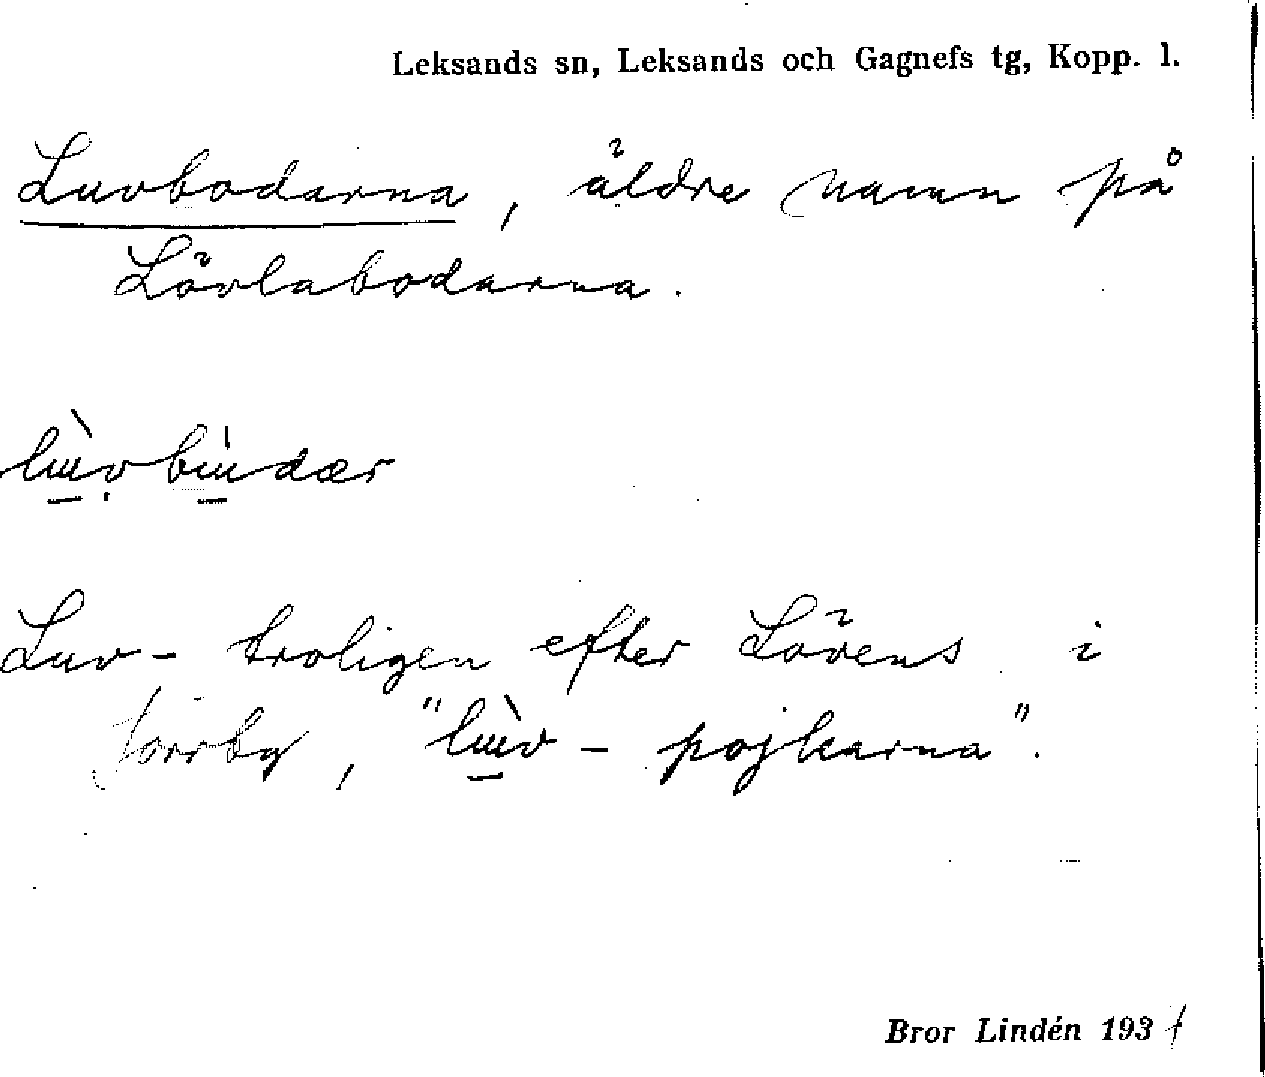 Leksands sn, Leksands och Gagnefs tg, Kopp. l.
Luvbodarna, äldre namn på
Lövlabodarna.
Luv- troligen efter Lövens i
Torrby, "lɯ̀v - pojkarna".
Bror Lindén 193